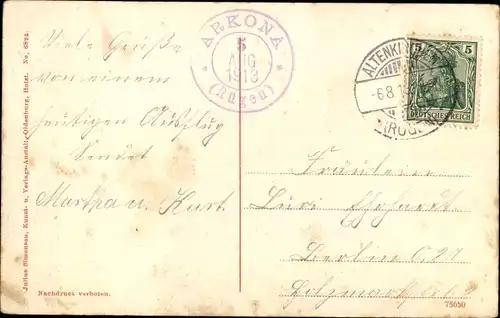 ARKONA
5
AUG
1913
(Rügen)
ALTENKI
-6.8.1
(RÜGE
5 5
DEUTSCHES REICH
Viele Grüße
von einem
heutigen Ausflug
sendet
Martha u. Kurt.
Fräulein
Ehrhardt
Berlin O.27
Julius Simonsen, Kunst- u. Verlags-Anstalt, Oldenburg, Holst. No. 6824.
Nachdruck verboten.
75650